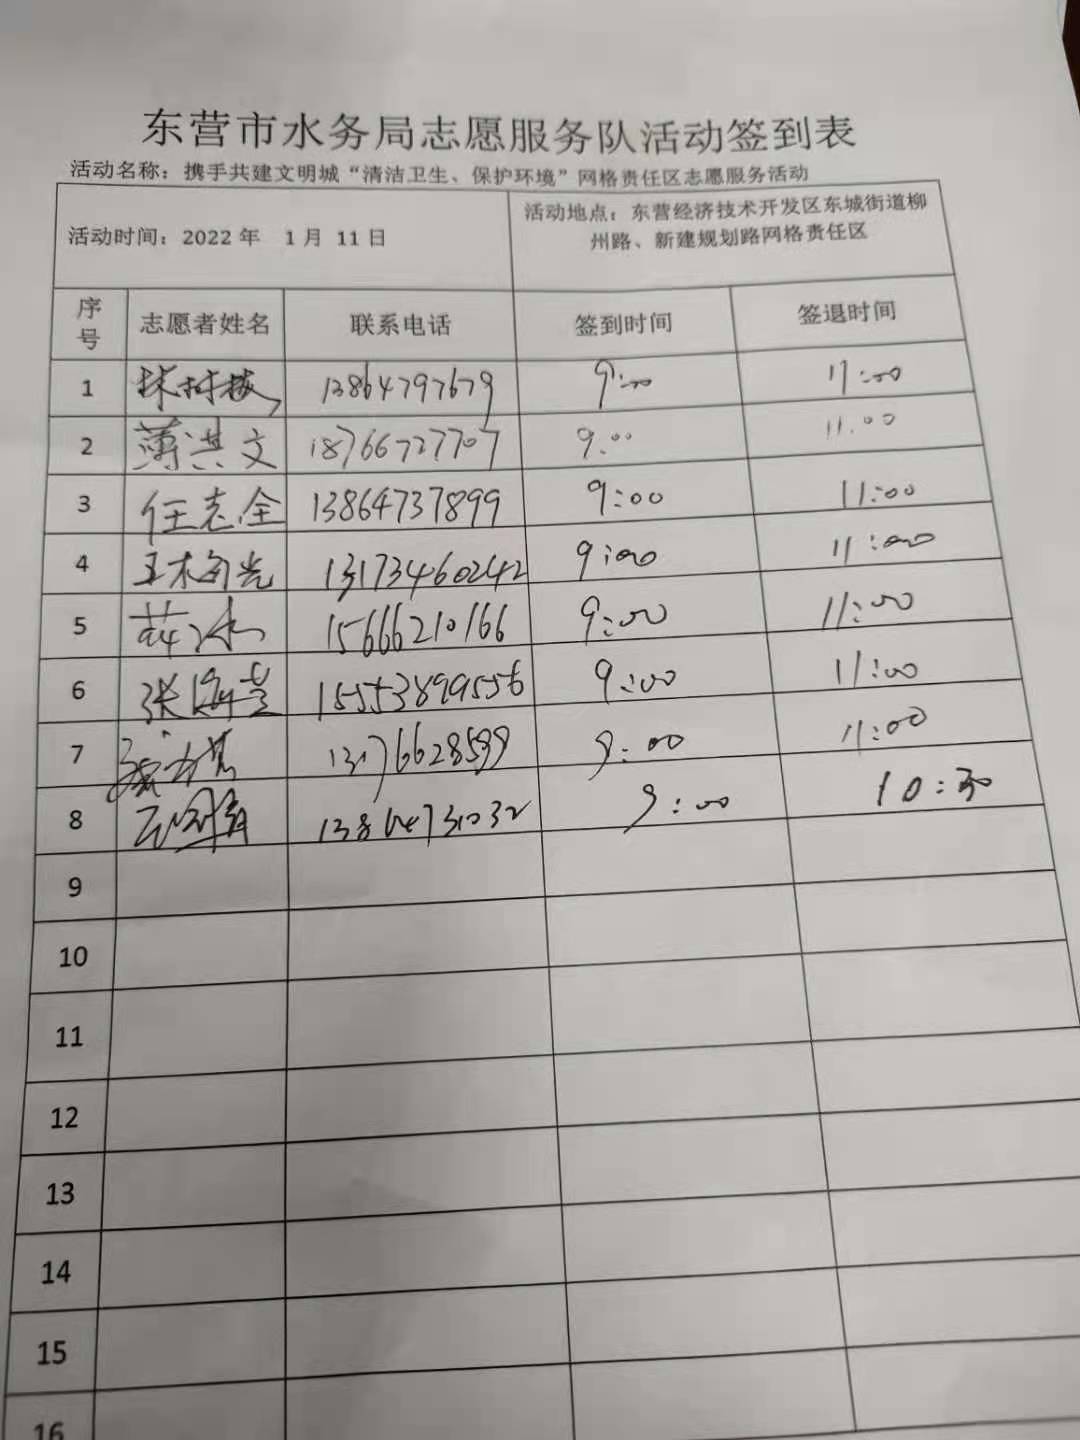 东营市水务局志愿服务队活动签到表
活动名称：携手共建文明城“清洁卫生、保护环境”网格责任区志愿服务活动
活动时间：2022 年 1 月 11 日
活动地点：东营经济技术开发区东城街道柳
州路、新建规划路网格责任区
序号 志愿者姓名 联系电话 签到时间 签退时间
1 13864797679 9:00 11:00
2 薄洪文 18766727707 9:00 11:00
3 任志全 13864737899 9:00 11:00
4 13173460242 9:00 11:00
5 15666210166 9:00 11:00
6 张 15553899556 9:00 11:00
7 13176628599 9:00 11:00
8 13864731032 9:00 10:30
9
10
11
12
13
14
15
16